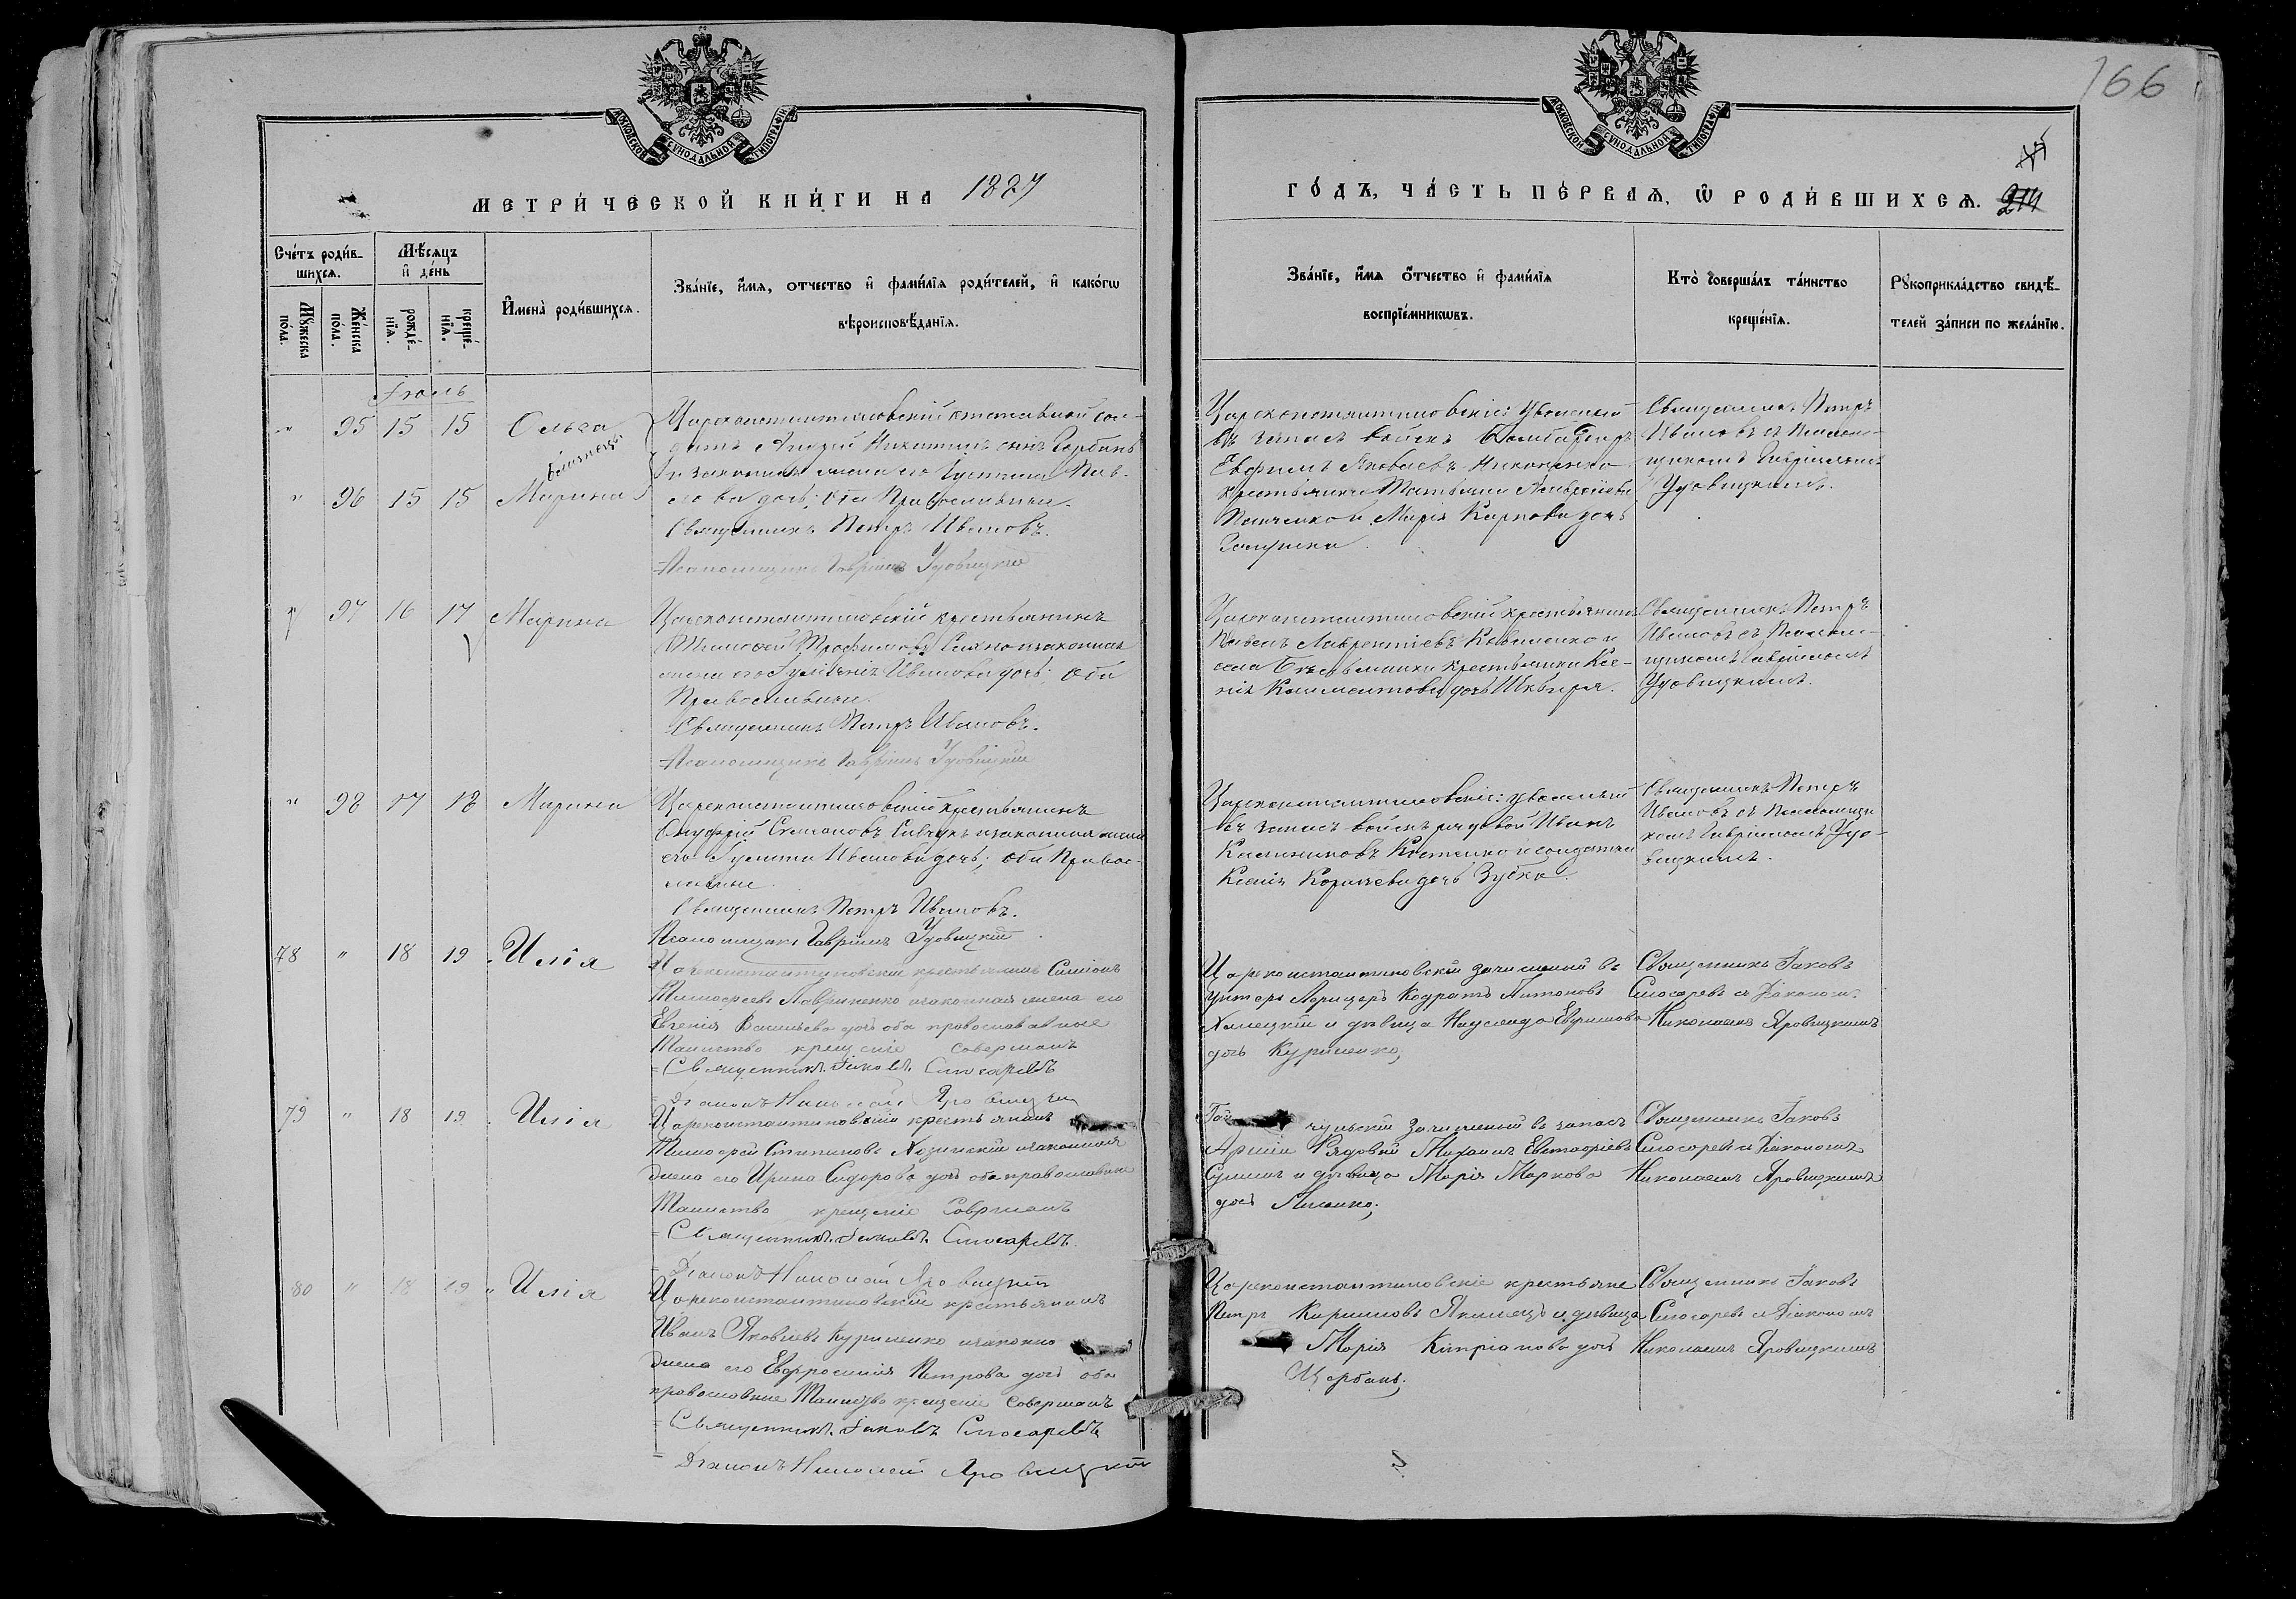 166
МОСКОВСКОЙ СѴНОДАЛЬНОЙ ТИПОГРАФІИ
МОСКОВСКОЙ СѴНОДАЛЬНОЙ ТИПОГРАФІИ
МЕТРИ́ЧЕСКОЙ КНИ́ГИ НА 1887
ГО́ДЪ, ЧА́СТЬ ПЕ́РВАѦ, Ѡ РОДИ́ВШИХСѦ. 214
Сче́тъ роди́в-
шихсѧ.
Мꙋ́жеска по́ла.
Же́нска по́ла.
Мѣ́сѧцъ и҆ де́нь
рожде́-нїѧ.
креще́-нїѧ.
И҆мена̀ роди́вшихсѧ.
Зва́нїе, и҆́мѧ, о҆́тчество и҆ фами́лїѧ роди́телей, и҆ како́гѡ
вѣроисповѣ́данїѧ.
Зва́нїе, и҆́мѧ, о҆́тчество и҆ фами́лїѧ
воспрїе́мникѡвъ.
Кто̀ соверша́лъ та́инство
креще́нїѧ.
Рꙋкоприкла́дство свидѣ́-
телей за́писи по жела́нїю.
Іюль
" 95 15 15 Ольга
близнецы
" 96 15 15 Марина
Цареконстантиновскій отставной сол-
датъ Андрей Никитинъ сынъ
и законная жена его Іустина Пав-
лова дочь; оба Православныи.
Священникъ Петръ Ивановъ.
Псаломщикъ Гавріилъ Удовицкій
Цареконстантиновскіе: уволенный
въ запасъ войскъ Бомбардиръ
Евфимъ Яковлевъ Никоненко
крестьянка Татьяна
Панченко и Марія Карпова дочь
Священникъ Петръ
Ивановъ съ Псалом-
щикомъ Гавріиломъ
Удовицкимъ.
" 97 16 17 Марина
Цареконстантиновскій крестьянинъ
Тимофей Трофимовъ и законная
жена его Гуліанія Иванова дочь; оба
Православныи.
Священникъ Петръ Ивановъ.
Псаломщикъ Гавріилъ Удовицкій
Цареконстантиновскій крестьянинъ
Павелъ Лаврентіевъ Коваленко и
села крестьянка Ксе-
нія Климентова дочь Шквыря.
Священникъ Петръ
Ивановъ съ Псалом-
щикомъ Гавріиломъ
Удовицкимъ.
" 98 17 18 Марина
Цареконстантиновскій крестьянинъ
Онуфрій Симоновъ и законная жена
его Іулита Иванова дочь; оба Правос-
лавные.
Священникъ Петръ Ивановъ.
Псаломщикъ Гавріилъ Удовицкій
Цареконстантиновскіе: уволенный
въ запасъ войскъ рядовой Иванъ
Калиниковъ Костенко и солдатка
Ксенія Корніева дочь Зубко.
Священникъ Петръ
Ивановъ съ Псаломщи-
комъ Гавріиломъ Удо-
вицкимъ.
78 " 18 19 Илія
Цареконстантиновскій крестьянинъ Симіонъ
Тимофеевъ Лавриненко и законная жена его
Евгенія Васильева дочь оба православные
Таинство крещеніе совершалъ
Священникъ Іаковъ Слюсаревъ
Діаконъ Николай Яровицкій
Цареконстантиновскій зачисленый въ
унтеръ Афицеръ Кодратъ Антоновъ
Халецкій и дѣвица Ефимова
дочь Куриленко;
Священникъ Іаковъ
Слюсаревъ съ Діакономъ
Николаемъ Яровицкимъ
79 " 18 19 Илія
Цареконстантиновскій крестьянинъ
Тимофей Степановъ и законная
жена его Ирина Сидорова дочь оба православные
Таинство крещеніе Совершалъ
Священникъ Іаковъ Слюсаревъ
Діаконъ Николай Яровицкій
Гай чульскій зачисленый въ запасъ
Арміи Рядовой Михаилъ Евстафіевъ
и дѣвица Марія Маркова
дочь
Священникъ Іаковъ
Слюсаревъ съ Діакономъ
Николаемъ Яровицкимъ
80 " 18 19 Илія
Цареконстантиновскій крестьянинъ
Иванъ Яковлевъ Куриленко и законно
жена его Евфросинія Петрова дочь оба
православные Таинство крещеніе совершалъ
Священникъ Іаковъ Слюсаревъ
Діаконъ Николай Яровицкій
Цареконстантиновскіе крестьяне
Петръ Кириловъ Якимецъ и дѣвица
Марія Кипріанова дочь
Щербакъ;
Священникъ Іаковъ
Слюсаревъ съ Діакономъ
Николаемъ Яровицкимъ